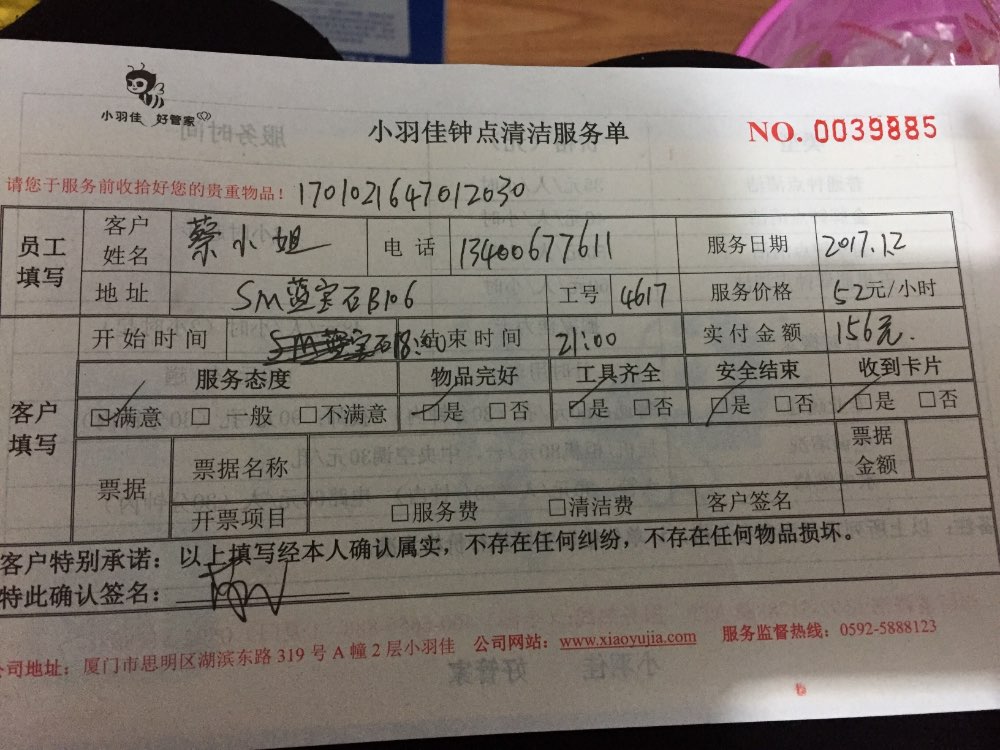 小羽佳 好管家
小羽佳钟点清洁服务单
NO. 0039885
请您于服务前收拾好您的贵重物品！ 1701021647012030
员工填写 客户姓名 蔡小姐 电话 13400677611 服务日期 2017.1.2
地址 SM蓝宝石B106 工号 4617 服务价格 52元/小时
客户填写 开始时间 18:00 结束时间 21:00 实付金额 156元.
服务态度 物品完好 工具齐全 安全结束 收到卡片
☑满意 □一般 □不满意 ☑是 □否 ☑是 □否 ☑是 □否 ☑是 □否
票据 票据名称 票据金额
开票项目 □服务费 □清洁费 客户签名
客户特别承诺：以上填写经本人确认属实，不存在任何纠纷，不存在任何物品损坏。
特此确认签名：
公司地址：厦门市思明区湖滨东路 319 号 A 幢 2 层小羽佳 公司网站：www.xiaoyujia.com 服务监督热线：0592-5888123